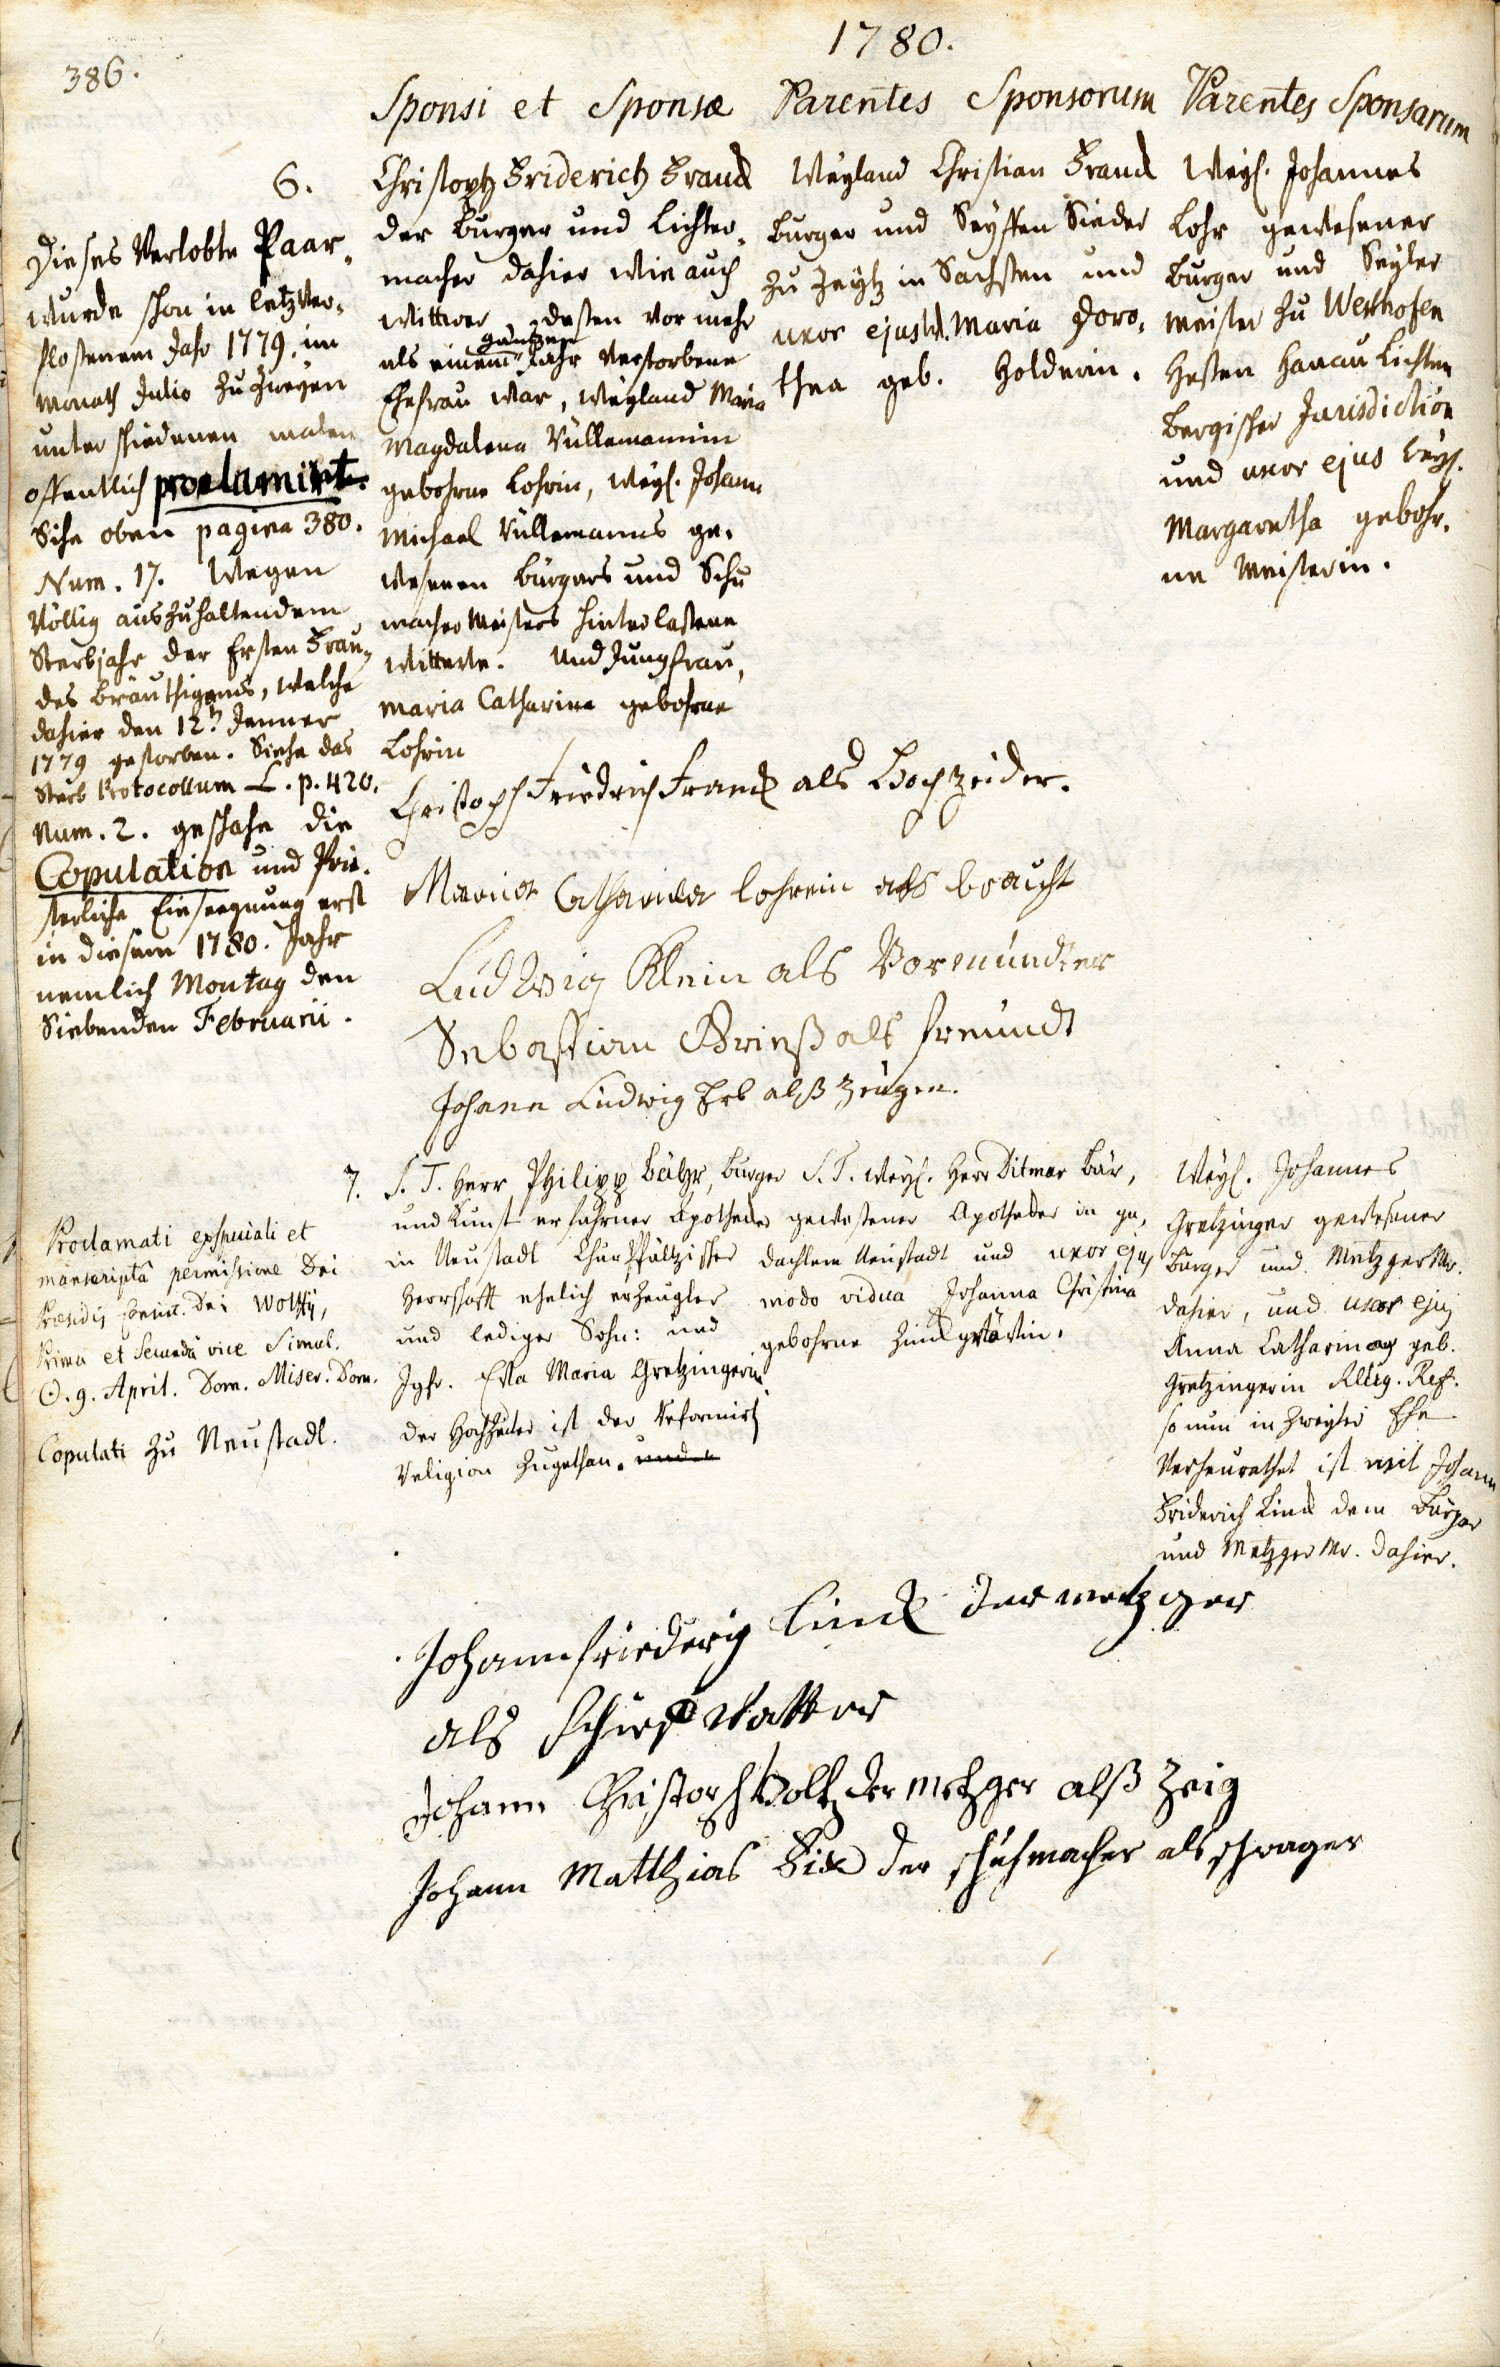 1780.
386.
Sponsi et Sponsæ
Parentes Sponsorum
Parentes Sponsarum
6.
Dieses Verlobte Paar,
wurde schon in letztver„
flossenem Jahr 1779. im
Monath Julio zu zweyen
unterschiedenen malen
offentlich proclamirt.
Sihe oben pagina 380.
Num. 17. Wegen
Völlig auszuhaltendem
Sterbjahr der Ersten Frau„
des Bräuthigams, welche
dahier den 12ten Jenner
1779 gestorben. Siehe das
Sterb Protocollum p. 420.
Num. 2. geschahe die
Copulation und Prie„
sterliche Einseegnung erst
in diesem 1780. Jahr
nemlich Montag den
Siebenden Februarii.
Christoph Friderich Franck
der Burger und Lichter„
macher dahier wie auch
Wittwer dessen vor mehr
als einem gantzen Jahr verstorbene
Ehefrau war, Weyland Maria
Magdalena Vüllemannin
gebohrne Lohrin, Weyl. Johann
Michael Vüllemanns ge„
wesenen Bürgers und Schu
macher Meisters hinterlassene
Wittwe. Und Jungfrau,
Maria Catharina gebohrne
Lohrin
Weyland Christian Franck
Burger und Seyffen Sieder
zu Zeytz in Sachsen und
uxor ejus W. Maria Doro„
thea geb. Holderin.
Weyl. Johannes
Lohr gewesener
Burger und Seyler
Meister zu Westhofen
Hessen Hanau Lichten
bergischer Jurisdiction
und uxor ejus Weyl.
Margaretha gebohr„
ne Meisterin.
Christoph Friedrich Franck als Hochzeider.
Maria Catharina lohrein als braucht
Ludwig Klein als Vormundter
Sebastian Brieß als freundt
Johann Ludwig Erb alß Zeugen.
7.
Proclamati ex speciali et
manscripta permissione Dni
Præsidis Dni Wolffij,
Prima et Secunda vice Simul.
☉. 9. April. Dom. Miser. Dom.
Copulati zu Neustadt.
S. T. Herr Philipp Bähr, Burger
und Kunst erfahrner Apothecker
in Neustadt Churpfältzischer
Herrschafft ehelich erzeugter
und lediger Sohn: und
Jgfr. Eva Maria Gretzingerin
der Hochzeiter ist der Reformirt
Religion zugethan. und
S. T. Weyl. Herr Ditmar Bär,
gewesener Apothecker in ge„
dachtem Neustadt und uxor ejus
modo vidua Johanna Christina
gebohrne Zinckgräfin.
Weyl. Johannes
Gretzinger gewesener
Burger und Metzger Mr.
dahier, und uxor ejus
Anna Catharina geb.
Gretzingerin Relig. Ref.
so nun in zweyter Ehe
verheurathet ist mit Johann
Friderich Linck dem Burger
und Metzger Mr. dahier.
Johann friederig Linck der metzger
als schief Vatter
Johann Christoph Voltz der Metzger alß Zeig
Johann Matthias Fix der schuhmacher als schwager